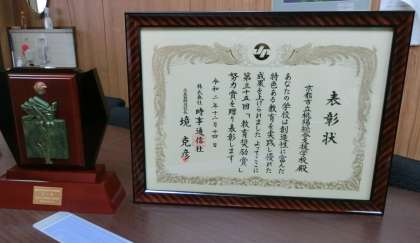 表彰状
京都市立桃陽総合支援学校殿
あなたの学校は創造性に富んだ
特色ある教育を実践し優れた
成果を上げられました よってここに
第三十五回「教育奨励賞」
努力賞を贈り表彰します
令和二年十一月十四日
株式会社 時事通信社
境 克彦